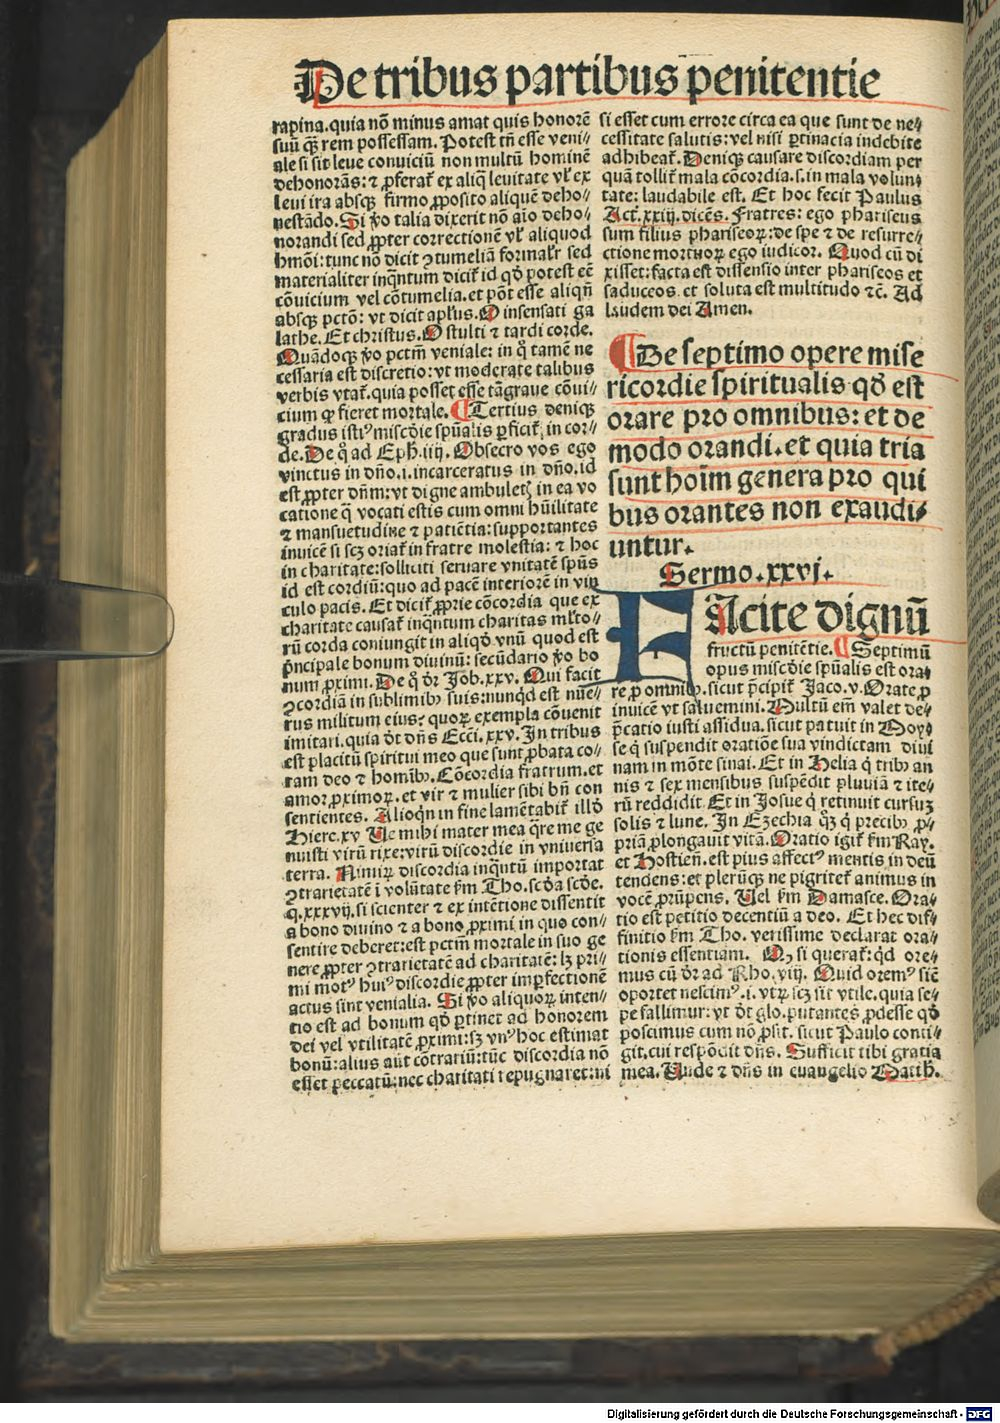 De tribus partibus penitentie
rapina. quia nō minus amat quis honorē
suū qȝ rem possessam. Potest tñ esse veni⸗
ale si sit leue conuiciū non multū hominē
dehonorās: ⁊ ꝓferat̄ ex aliq̄ leuitate vl̓ ex
leui ira absqȝ firmo ꝓposito aliquē deho⸗
nestādo. Si ꝟo talia dixerit nō aīo deho⸗
norandi sed ꝓpter correctionē vl̓ aliquod
hmōi: tunc nō dicit ꝯtumeliā formalr̓ sed
materialiter inqͫntum dicit̄ id qḋ potest eē
cōuicium vel cōtumelia. et pōt esse aliqñ
absqȝ pctō: vt dicit apl̓us. O insensati ga
lathe. Et christus. O stulti ⁊ tardi corde.
Quādoqȝ ꝟo pctm̄ veniale: in q̊ tamē ne
cessaria est discretio: vt moderate talibus
verbis vtat̄. quia posset esse tāgraue cōui⸗
cium qp fieret mortale. ¶ Tertius deniqȝ
gradus isti⁹ miscḋie spūalis ꝑficit̄ in cor⸗
de. De q̊ ad Eph. iiij. Obsecro vos ego
vinctus in dño. i. incarceratus in dño. id
est ꝓpter dñm: vt digne ambuletꝭ in ea vo
catione q̄ vocati estis cum omni hūilitate
⁊ mansuetudine ⁊ patiētia: supportantes
inuicē si scȝ oriat̄ in fratre molestia: ⁊ hoc
in charitate: solliciti seruare vnitatē spūs
id est cordiū: quo ad pacē interiorē in vin
culo pacis. Et dicit̄ ꝓprie cōcordia que ex
charitate causat̄ inqͫntum charitas ml̓to⸗
rū corda coniungit in aliqḋ vnū quod est
pͥncipale bonum diuinū: secūdario ꝟo bo
num ꝓximi. De q̊ ḋr Job. xxv. Qui facit
ꝯcordiā in sublimibꝰ suis: nunqͥd est nūe⸗
rus militum eius: quoꝝ exempla cōuenit
imitari. quia ḋt dñs Ecci. xxv. In tribus
est placitū spiritui meo que sunt ꝓbata co⸗
ram deo ⁊ homībꝰ. Cōcordia fratrum. et
amor ꝓximoꝝ. et vir ⁊ mulier sibi bñ con
sentientes. Alioqͥn in fine lamētabit̄ illḋ
Hiere. xv Ue mihi mater mea qͣre me ge
nuisti virū rixe: virū discordie in vniuersa
terra. Nimiꝝ discordia inqͣntū importat
ꝯtrarietatē i volūtate ẜm Tho. scḋa scḋe.
q. xxxvij. si scienter ⁊ ex intētione dissentit
a bono diuino ⁊ a bono ꝓximi in quo con⸗
sentire deberet: est pctm̄ mortale in suo ge
nere ꝓpter ꝯtrarietatē ad charitatē: lȝ pri⸗
mi mot⁹ hui⁹ discordie ꝓpter imꝑfectionē
actus sint venialia. Si ꝟo aliquoꝝ inten⸗
tio est ad bonum qḋ ꝑtinet ad honorem
dei vel vtilitatē ꝓximi: sȝ vn⁹ hoc estimat
bonū: alius aūt cōtrariū: tūc discordia nō
esset peccatū: nec charitati repugnaret: ni
si esset cum errore circa ea que sunt de ne⸗
cessitate salutis: vel nisi ꝑtinacia indebite
adhibeat̄. Deniqȝ causare discordiam per
quā tollit̄ mala cōcordia. s. in mala volun⸗
tate: laudabile est. Et hoc fecit Paulus
Act̄. xxiij. dicēs. Fratres: ego phariseus
sum filius phariseoꝝ: de spe ⁊ de resurre⸗
ctione mortuoꝝ ego iudicor. Quod cū di
xisset: facta est dissensio inter phariseos et
saduceos. et soluta est multitudo ⁊c̄. Ad
laudem dei Amen.
¶ De septimo opere mise
ricordie spiritualis qḋ est
orare pro omnibus: et de
modo orandi. et quia tria
sunt hoīm genera pro qui
bus orantes non exaudi⸗
untur.
Sermo. xxvj.
FAcite dignū
fructū penitētie. ¶ Septimū
opus miscḋie spūalis est ora⸗
re ꝓ omnibꝰ. sicut pͥcipit̄ Jaco. v. Orate ꝓ
inuicē vt saluemini. Multū em̄ valet de⸗
p̄catio iusti assidua. sicut patuit in Moy⸗
se q̄ suspendit oratiōe sua vindictam diui
nam in mōte sinai. Et in Helia q̄ tribꝰ an
nis ⁊ sex mensibus suspēdit pluuiā ⁊ ite⸗
rū reddidit Et in Josue q̄ retinuit cursuȝ
solis ⁊ lune. In Ezechia qͥȝ q̄ precibꝰ ꝓ⸗
priā ꝓlongauit vitā. Oratio igit̄ ẜm Ray.
et Hostien̄. est pius affect⁹ mentis in deū
tendens: et plerūqȝ ne pigritet̄ animus in
vocē ꝓrūpens. Uel ẜm Damasce. Ora⸗
tio est petitio decentiū a deo. Et hec dif⸗
finitio ẜm Tho. verissime declarat ora⸗
tionis essentiam. Qꝫ si querat̄: qḋ ore⸗
mus cū ḋr ad Rho. viij. Quid orem⁹ siē
oportet nescim⁹. i. vtꝝ scȝ sit vtile. quia se⸗
pe fallimur: vt ḋt glo. putantes ꝓdesse qḋ
poscimus cum nō ꝓsit. sicut Paulo conti⸗
git. cui respōdit dñs. Sufficit tibi gratia
mea. Unde ⁊ dñs in euangelio Matth.
Digitalisierung gefördert durch die Deutsche Forschungsgemeinschaft - DFG